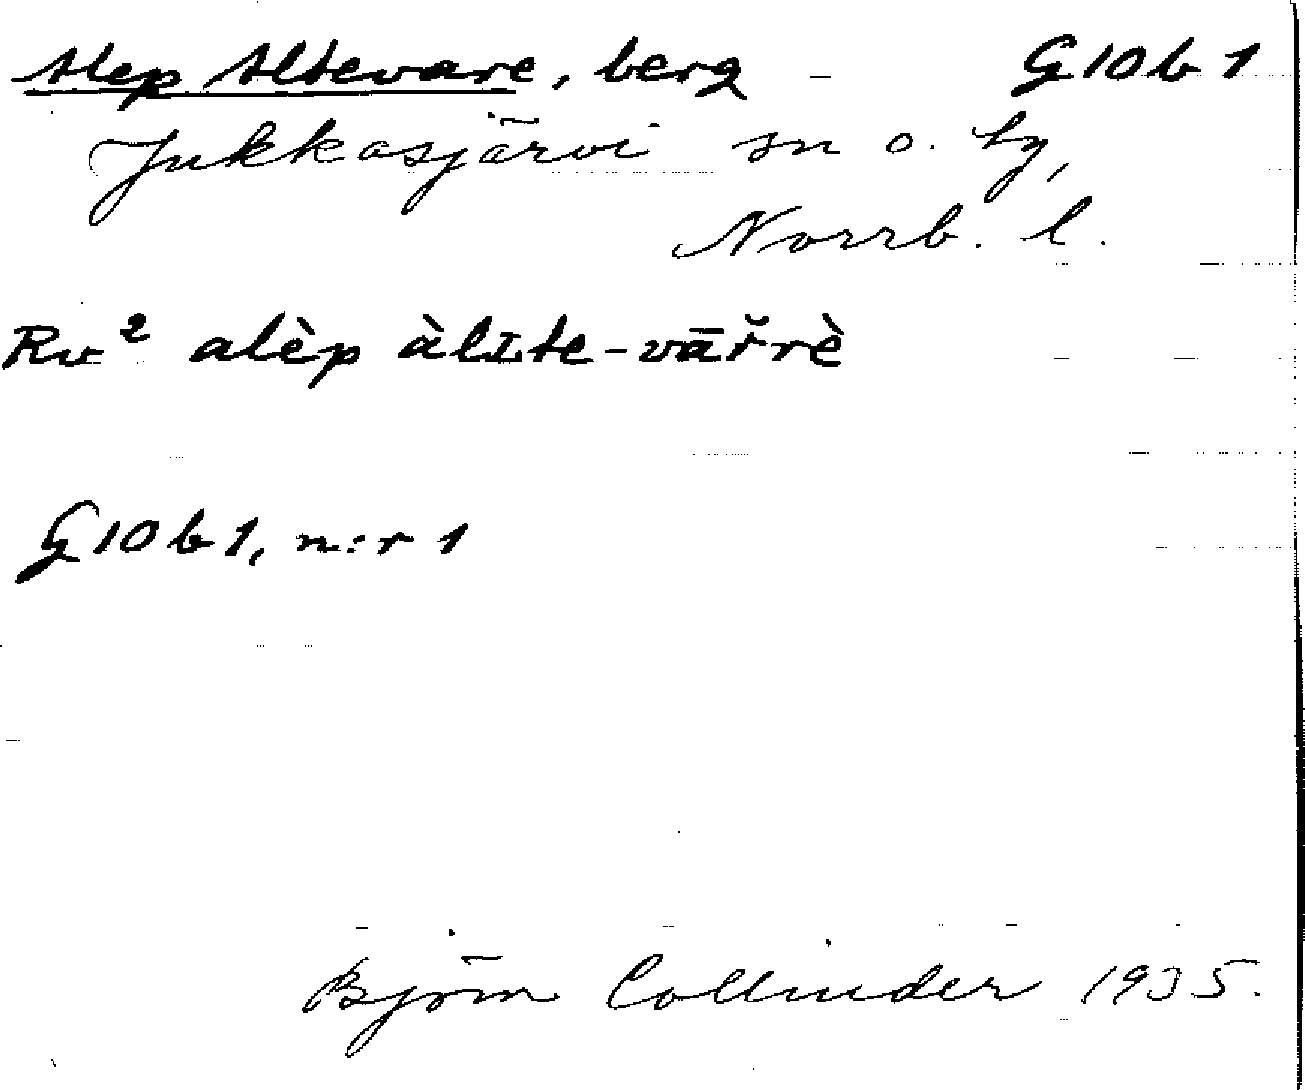 Alep Altevare, berg G10b1
Jukkasjärvi sn o. by,
Norrb. l.
Rv² alèp àlɪte-vār̆rè
G10b1, n:r 1
Björn Collinder 1935.